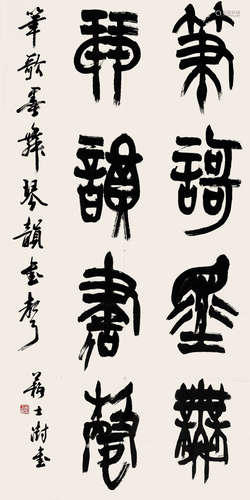 笔謌墨舞
琴韻書聲
笔歌墨舞琴韻書聲
蘇士澍書